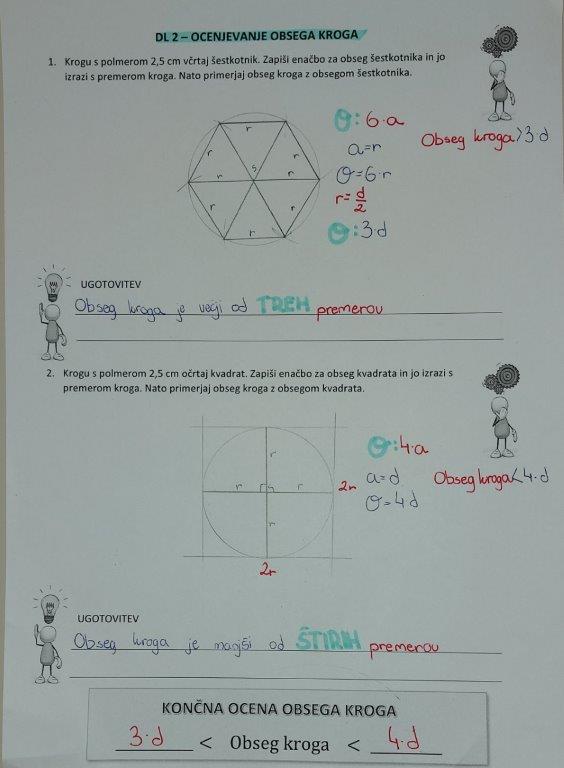 DL 2 – OCENJEVANJE OBSEGA KROGA
1. Krogu s polmerom 2,5 cm včrtaj šestkotnik. Zapiši enačbo za obseg šestkotnika in jo
izrazi s premerom kroga. Nato primerjaj obseg kroga z obsegom šestkotnika.
r
r
r
r
r
S
r
r
r
O: 6·a
a=r
O=6·r
r=d/2
O:3·d
Obseg kroga>3·d
UGOTOVITEV
Obseg kroga je večji od TREH premerov
2. Krogu s polmerom 2,5 cm očrtaj kvadrat. Zapiši enačbo za obseg kvadrata in jo izrazi s
premerom kroga. Nato primerjaj obseg kroga z obsegom kvadrata.
r
r
r
r
2r
2r
O:4·a
a=d
O=4d
Obseg kroga<4·d
UGOTOVITEV
Obseg kroga je manjši od ŠTIRIH premerov
KONČNA OCENA OBSEGA KROGA
3·d < Obseg kroga < 4·d